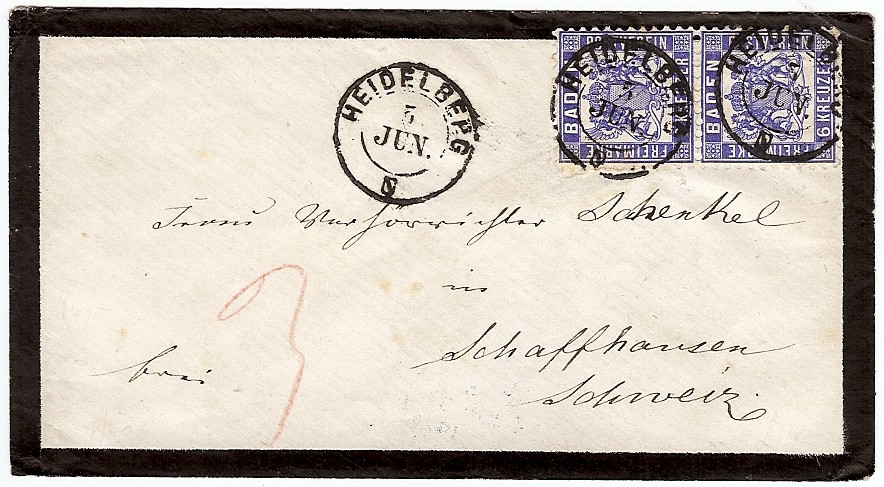 HEIDELBERG
5
JUN.
N
BADEN
POSTVEREIN
6 KREUZER
FREIMARKE
HEIDELBERG
5
JUN.
N
BADEN
6 KREUZER
FREIMARKE
HEIDELBERG
JUN.
N
Frau Verhörrichter Schenkel
in
3
Schaffhausen
frei
Schweiz